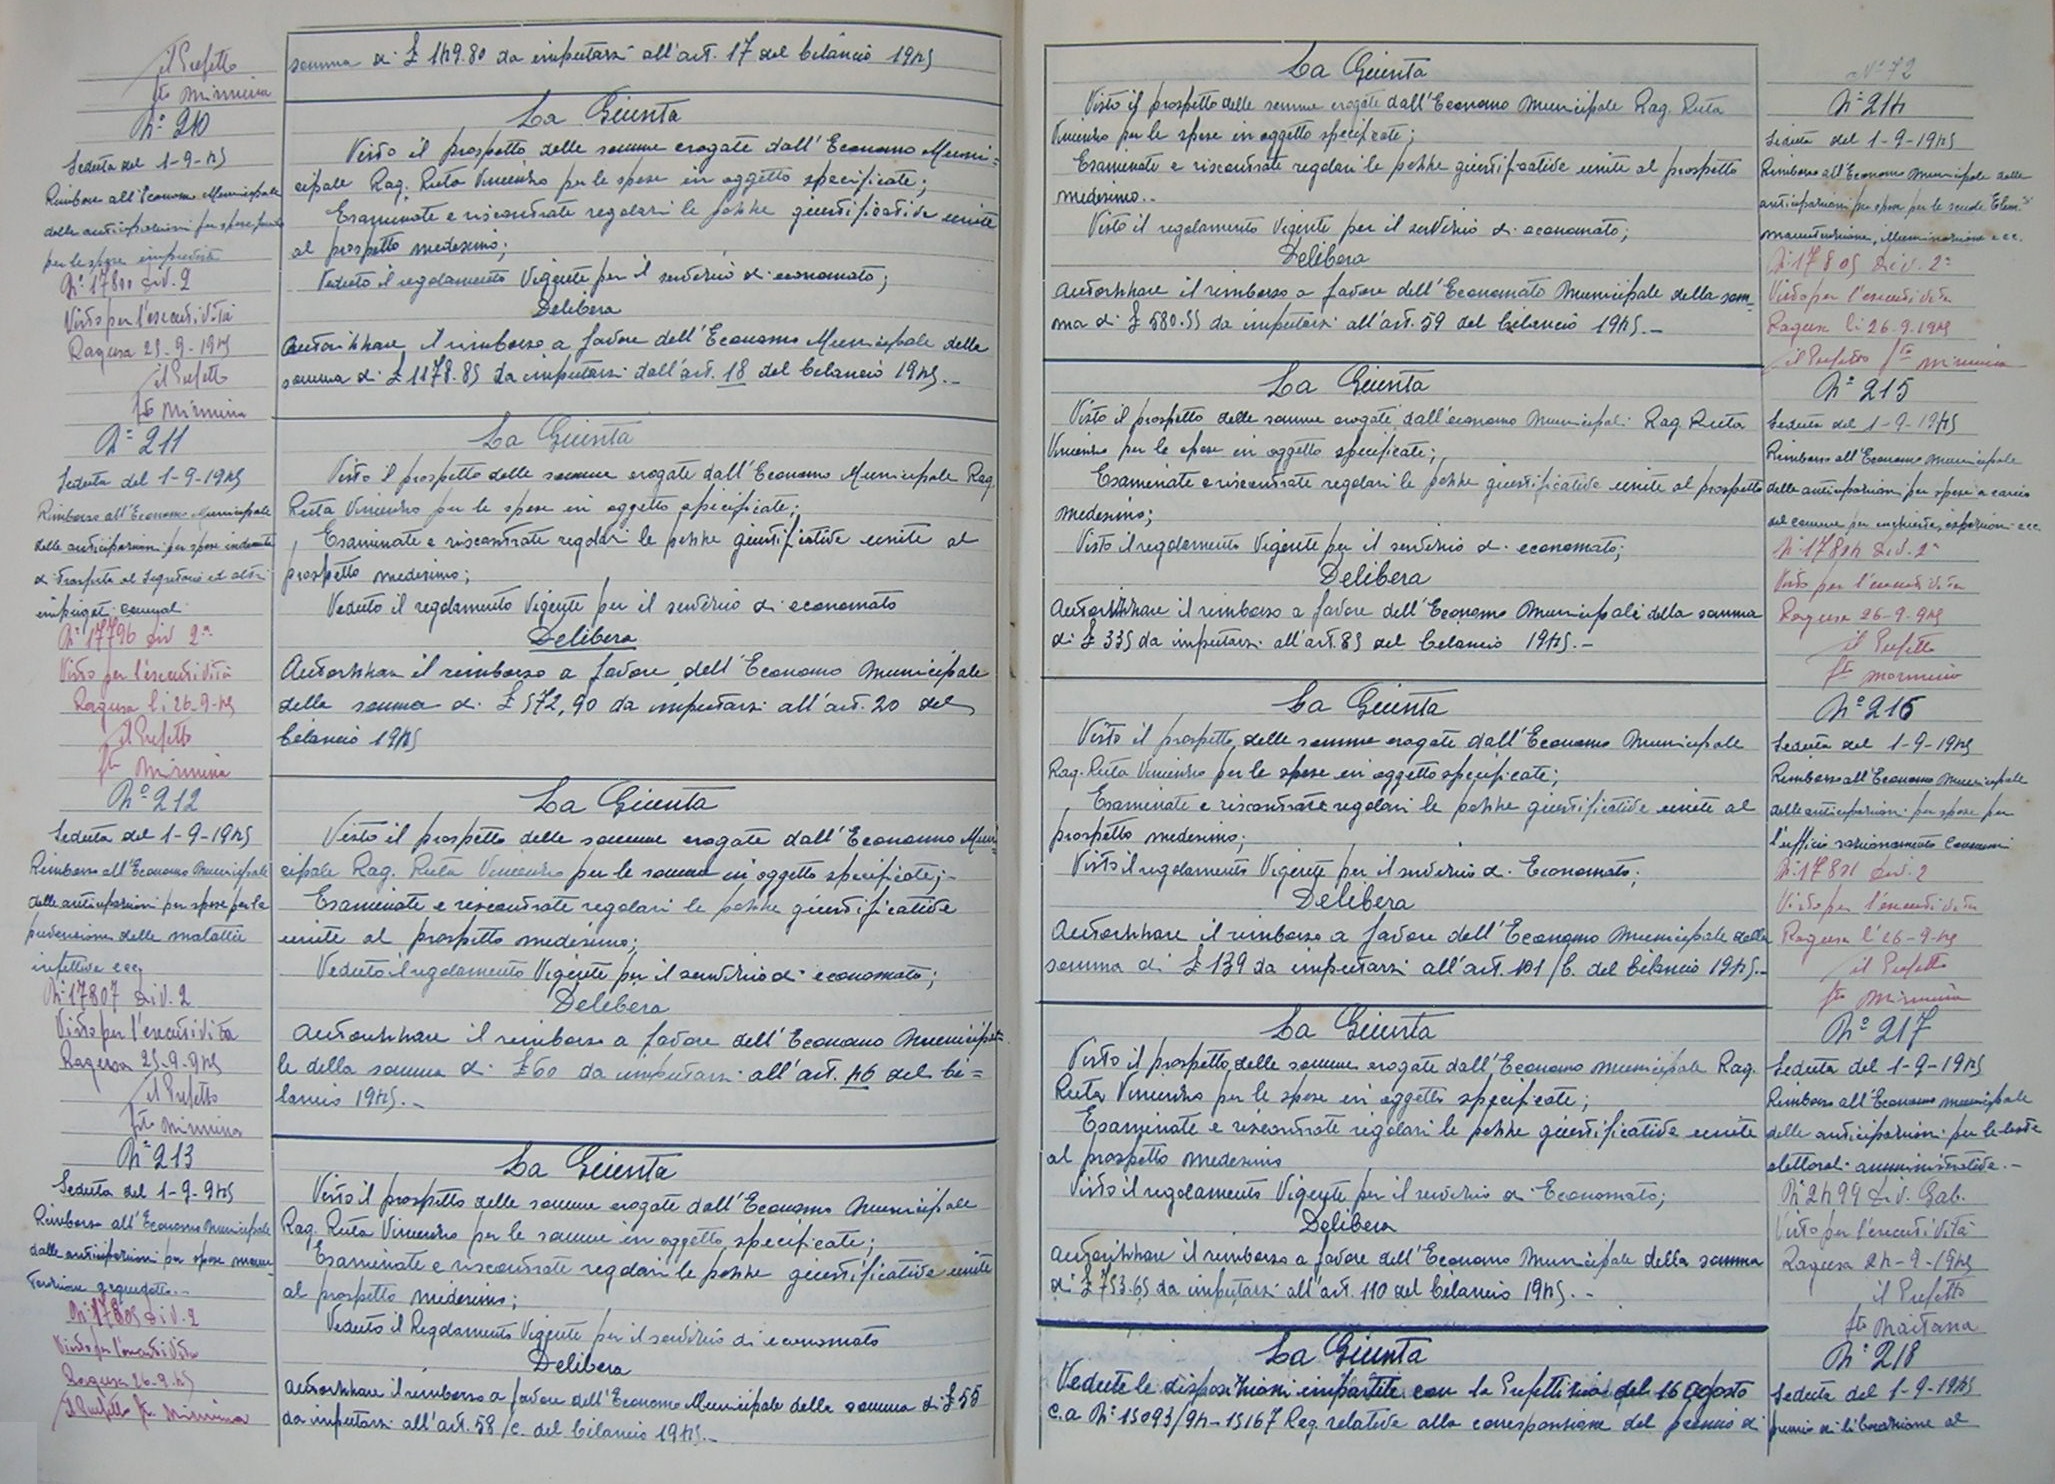 il Prefetto
fto Mirmina
somma di £ 149.80 da imputarsi all'art. 17 del bilancio 1945
N° 210
Seduta del 1-9-45
Rimborso all'Economo Municipale
delle anticipazioni per spese
per le spese impreviste
N° 17800 Div. 2
Visto per l'esecutività
Ragusa 25-9-1945
il Prefetto
fto Mirmina
La Giunta
Visto il prospetto delle somme erogate dall'Economo Muni=
cipale Rag. Ruta Vincenzo per le spese in oggetto specificate;
Esaminate e riscontrate regolari le pezze giustificative unite
al prospetto medesimo;
Veduto il regolamento Vigente per il servizio di economato;
Delibera
Autorizzare il rimborso a favore dell'Economo Municipale della
somma di £ 1178.85 da imputarsi dall'art. 18 del bilancio 1945.-
N° 211
Seduta del 1-9-1945
Rimborso all'Economo Municipale
delle anticipazioni per spese indennità
di trasferta al Segretario ed altri
impiegati comunali
N° 17796 Div 2a
Visto per l'esecutività
Ragusa li 26-9-45
il Prefetto
fto Mirmina
La Giunta
Visto il prospetto delle somme erogate dall'Economo Municipale Rag.
Ruta Vincenzo per le spese in oggetto specificate;
Esaminate e riscontrate regolari le pezze giustificative unite al
prospetto medesimo;
Veduto il regolamento Vigente per il servizio di economato
Delibera
Autorizzare il rimborso a favore dell'Economo Municipale
della somma di £ 572,90 da imputarsi all'art. 20 del
bilancio 1945
N° 212
Seduta del 1-9-1945
Rimborso all'Economo Municipale
delle anticipazioni per spese per la
prevenzione delle malattie
infettive ecc
N° 17807 Div. 2
Visto per l'esecutività
Ragusa 25-9-945
il Prefetto
fto Mirmina
La Giunta
Visto il prospetto delle somme erogate dall'Economo Muni=
cipale Rag. Ruta Vincenzo per le somme in oggetto specificate;-
Esaminate e riscontrate regolari le pezze giustificative
unite al prospetto medesimo;
Veduto il regolamento Vigente per il servizio di economato;
Delibera
Autorizzare il rimborso a favore dell'Economo Municipa=
le della somma di £ 60 da imputarsi all'art. 46 del bi=
lancio 1945.-
N° 213
Seduta del 1-9-945
Rimborso all'Economo Municipale
delle anticipazioni per spese manu=
tenzione acquedotto.-
N° 17805 Div. 2
Visto per l'esecutività
Ragusa 26-9-45
Il Prefetto fto Mirmina
La Giunta
Visto il prospetto delle somme erogate dall'Economo Municipale
Rag. Ruta Vincenzo per le somme in oggetto specificate;
Esaminate e riscontrate regolari le pezze giustificative unite
al prospetto medesimo;
Veduto il Regolamento Vigente per il servizio di economato
Delibera
Autorizzare il rimborso a favore dell'Economo Municipale della somma di £ 55
da imputarsi all'art. 58/c. del bilancio 1945.-
N° 72
La Giunta
Visto il prospetto delle somme erogate dall'Economo Municipale Rag. Ruta
Vincenzo per le spese in oggetto specificate;
Esaminate e riscontrate regolari le pezze giustificative unite al prospetto
medesimo..
Visto il regolamento Vigente per il servizio di economato;
Delibera
Autorizzare il rimborso a favore dell'Economato Municipale della som=
ma di £ 580.55 da imputarsi all'art. 59 del bilancio 1945.-
N° 214
Seduta del 1-9-1945
Rimborso all'Economo Municipale delle
anticipazioni per spese per le scuole Elem.
manutenzione, illuminazione ecc.
N° 17805 Div. 2a
Visto per l'esecutività
Ragusa li 26.9.1945
il Prefetto fto Mirmina
La Giunta
Visto il prospetto delle somme erogate dall'economo Municipale Rag. Ruta
Vincenzo per le spese in oggetto specificate;
Esaminate e riscontrate regolari le pezze giustificative unite al prospetto
medesimo;
Visto il regolamento Vigente per il servizio di economato;
Delibera
Autorizzare il rimborso a favore dell'Economo Municipale della somma
di £ 335 da imputarsi all'art. 85 del bilancio 1945.-
N° 215
Seduta del 1-9-1945
Rimborso all'Economo Municipale
delle anticipazioni per spese a carico
del comune per inchieste, ispezioni ecc
N° 17804 Div. 2a
Visto per l'esecutività
Ragusa 26-9-945
il Prefetto
fto Mirmina
La Giunta
Visto il prospetto delle somme erogate dall'Economo Municipale
Rag. Ruta Vincenzo per le spese in oggetto specificate;
Esaminate e riscontrate regolari le pezze giustificative unite al
prospetto medesimo;
Visto il regolamento Vigente per il servizio di Economato;
Delibera
Autorizzare il rimborso a favore dell'Economo Municipale della
somma di £ 139 da imputarsi all'art. 101/b. del bilancio 1945.-
N° 216
Seduta del 1-9-1945
Rimborso all'Economo Municipale
delle anticipazioni per spese per
l'ufficio razionamento Consumi
N° 17801 Div. 2
Visto per l'esecutività
Ragusa l'26-9-45
il Prefetto
fto Mirmina
La Giunta
Visto il prospetto delle somme erogate dall'Economo Municipale Rag.
Ruta Vincenzo per le spese in oggetto specificate;
Esaminate e riscontrate regolari le pezze giustificative unite
al prospetto medesimo
Visto il regolamento Vigente per il servizio di Economato;
Delibera
Autorizzare il rimborso a favore dell'Economo Municipale della somma
di £ 753.65 da imputarsi all'art. 110 del bilancio 1945.-
N° 217
Seduta del 1-9-1945
Rimborso all'Economo Municipale
delle anticipazioni per le liste
elettorali amministrative.-
N° 2499 Div. Gab.
Visto per l'esecutività
Ragusa 24-9-1945
il Prefetto
fto Maitana
La Giunta
Vedute le disposizioni impartite con la Prefettizia del 16 Agosto
c.a N° 15093/94-15167 Rag. relative alla corresponsione del premio di
N° 218
Seduta del 1-9-1945
premio di liberazione al